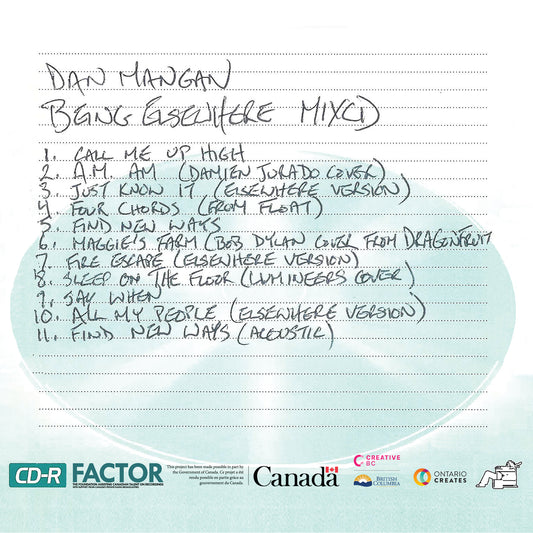 DAN MANGAN
BEING ELSEWHERE MIXCD
1. CALL ME UP HIGH
2. A.M. AM (DAMIEN JURADO COVER)
3. JUST KNOW IT (ELSEWHERE VERSION)
4. FOUR CHORDS (FROM FLOAT)
5. FIND NEW WAYS
6. MAGGIE'S FARM (BOB DYLAN COVER FROM DRAGONFRUIT
7. FIRE ESCAPE (ELSEWHERE VERSION)
8. SLEEP ON THE FLOOR (LUMINEERS COVER)
9. SAY WHEN
10. ALL MY PEOPLE (ELSEWHERE VERSION)
11. FIND NEW WAYS (ACOUSTIC)
CD-R
FACTOR
THE FOUNDATION ASSISTING CANADIAN TALENT ON RECORDINGS
This project has been made possible in part by
the Government of Canada. Ce projet a été
rendu possible en partie grâce au
gouvernement du Canada.
Canada
CREATIVE
BC
BRITISH
COLUMBIA
ONTARIO
CREATES